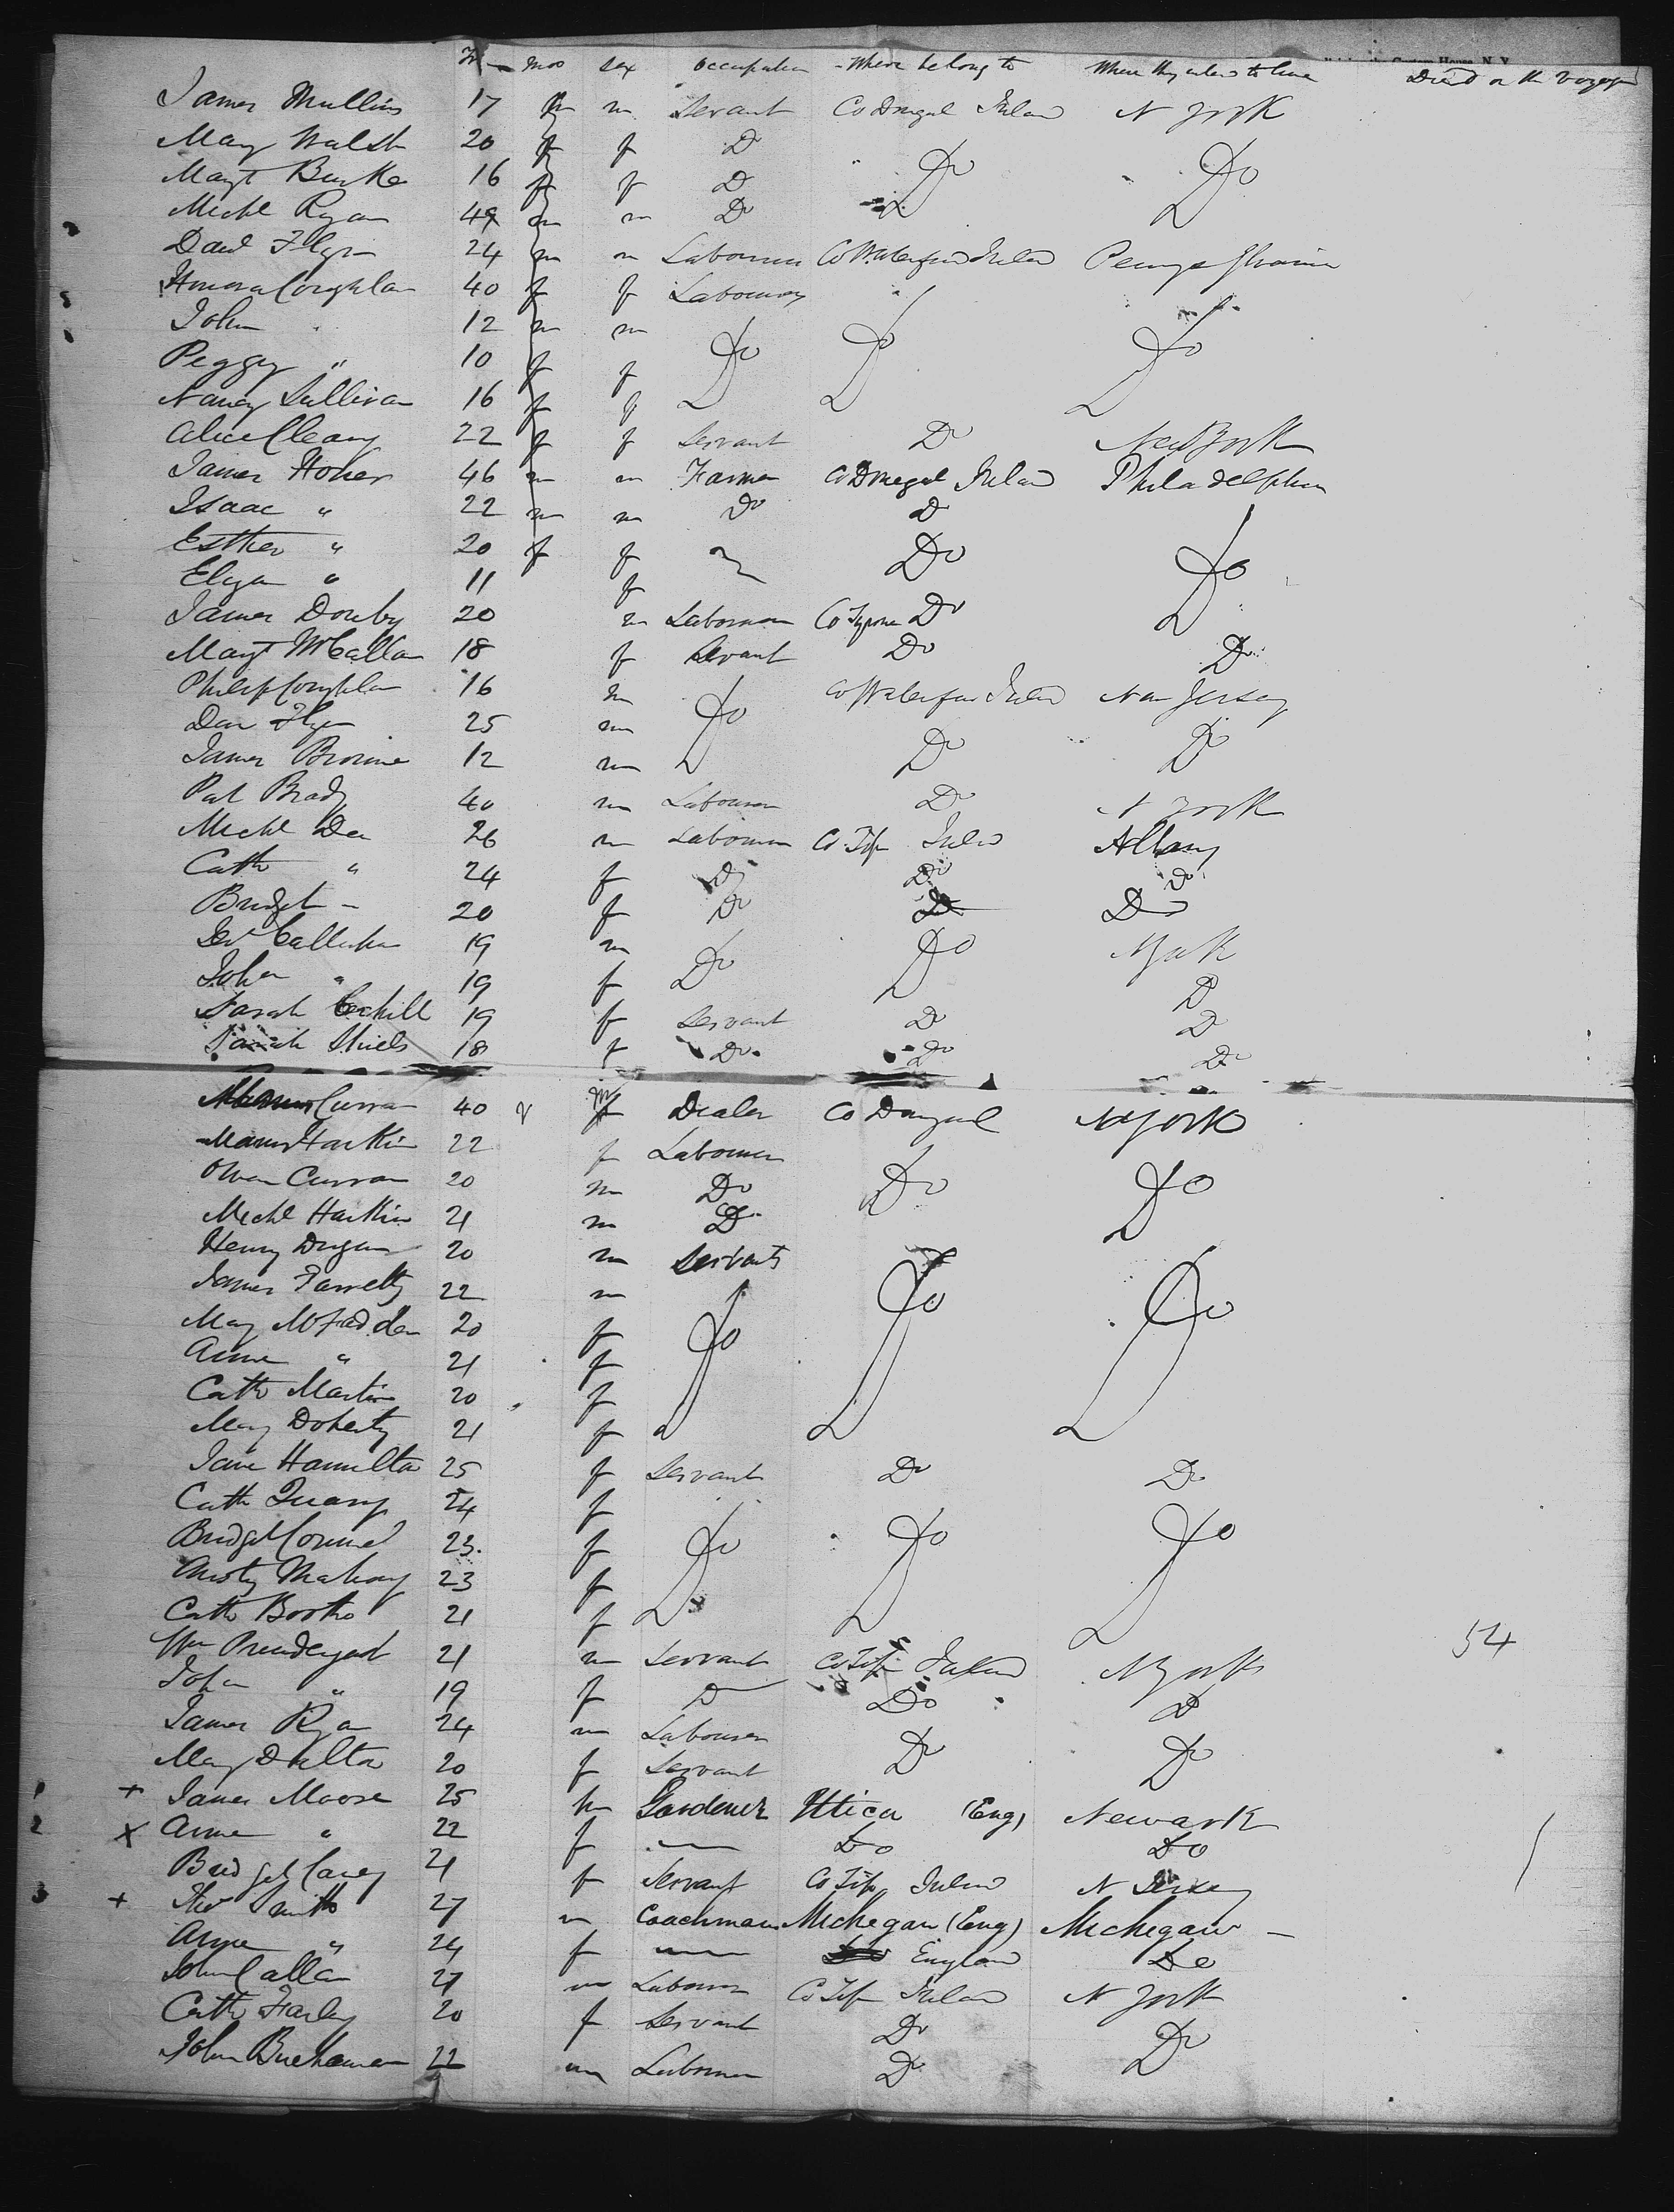 Yrs mos sex occupation Where belong to Where they intend to live Died on the voyage
James Mullins 17 m m Servant Co Donegal Ireland N York
Mary Walsh 20 f f Do Do Do
Margt Burke 16 f f Do
Michl Ryan 49 m m Do
David Flyn 24 m m Labourer Co Waterford Ireland Pennsylvania
Honora Coughlan 40 f f Labourer
John 12 m m Do Do Do
Peggy " 10 f f
Nancy Sullivan 16 f f
Alice Cleary 22 f f Servant Do New York
James Homer 46 m m Farmer Co Donegal Ireland Philadelphia
Isaac " 22 m m Do Do
Esther " 20 f f Do Do
Eliza " 11 f
James Donby 20 m Labourer Co Tyrone Do
Margt McCallan 18 f Servant Do Do
Philip Coughlan 16 m Co Waterford Ireland New Jersey
Dan Flyn 25 m Do
James Browne 12 m Do Do
Pat Brady 40 m Labourer Do N York
Michl Dea 26 m Labourer Co Tip Ireland Albany
Cath " 24 f Do Do Do
Bridget - 20 f Do Do Do
Callaghan 19 m Do Do N York
John " 19 f Do
Sarah Cahill 19 f Servant Do Do
Sarah Shiels 18 f Do Do Do
Curran 40 m Dealer Co Donegal N York
Harkin 22 f Labourer
Owen Curran 20 m Do Do Do
Michl Harkin 21 m Do
Henry Dugan 20 m Servants
James 22 m
Mary McFadden 20 f Do Do Do
Anne " 21 f
Cath Martin 20 f
Mary Doherty 21 f
Jane Hamilton 25 f Servant Do Do
Cath 24 f
Bridget 23 f Do Do Do
Mahony 23 f
Cath Booth 21 f
Wm Prendergast 21 m Servant Co Tip Ireland N York 54
John " 19 f Do Do Do
James Ryan 24 m Labourer
Mary Dalton 20 f Servant Do Do
1 + James Moore 25 m Gardener Utica (Eng) Newark
2 x Anne " 22 f Do Do
Bridget Carey 21 f Servant Co Tip Ireland N Jersey
3 + Smith 27 m Coachman Michegan (Eng) Michegan
Anne " 24 f England Do
John Callan 27 m Labourer Co Tip Ireland N York
Cath Farley 20 f Servant Do Do
John Buchanan 22 m Labourer Do